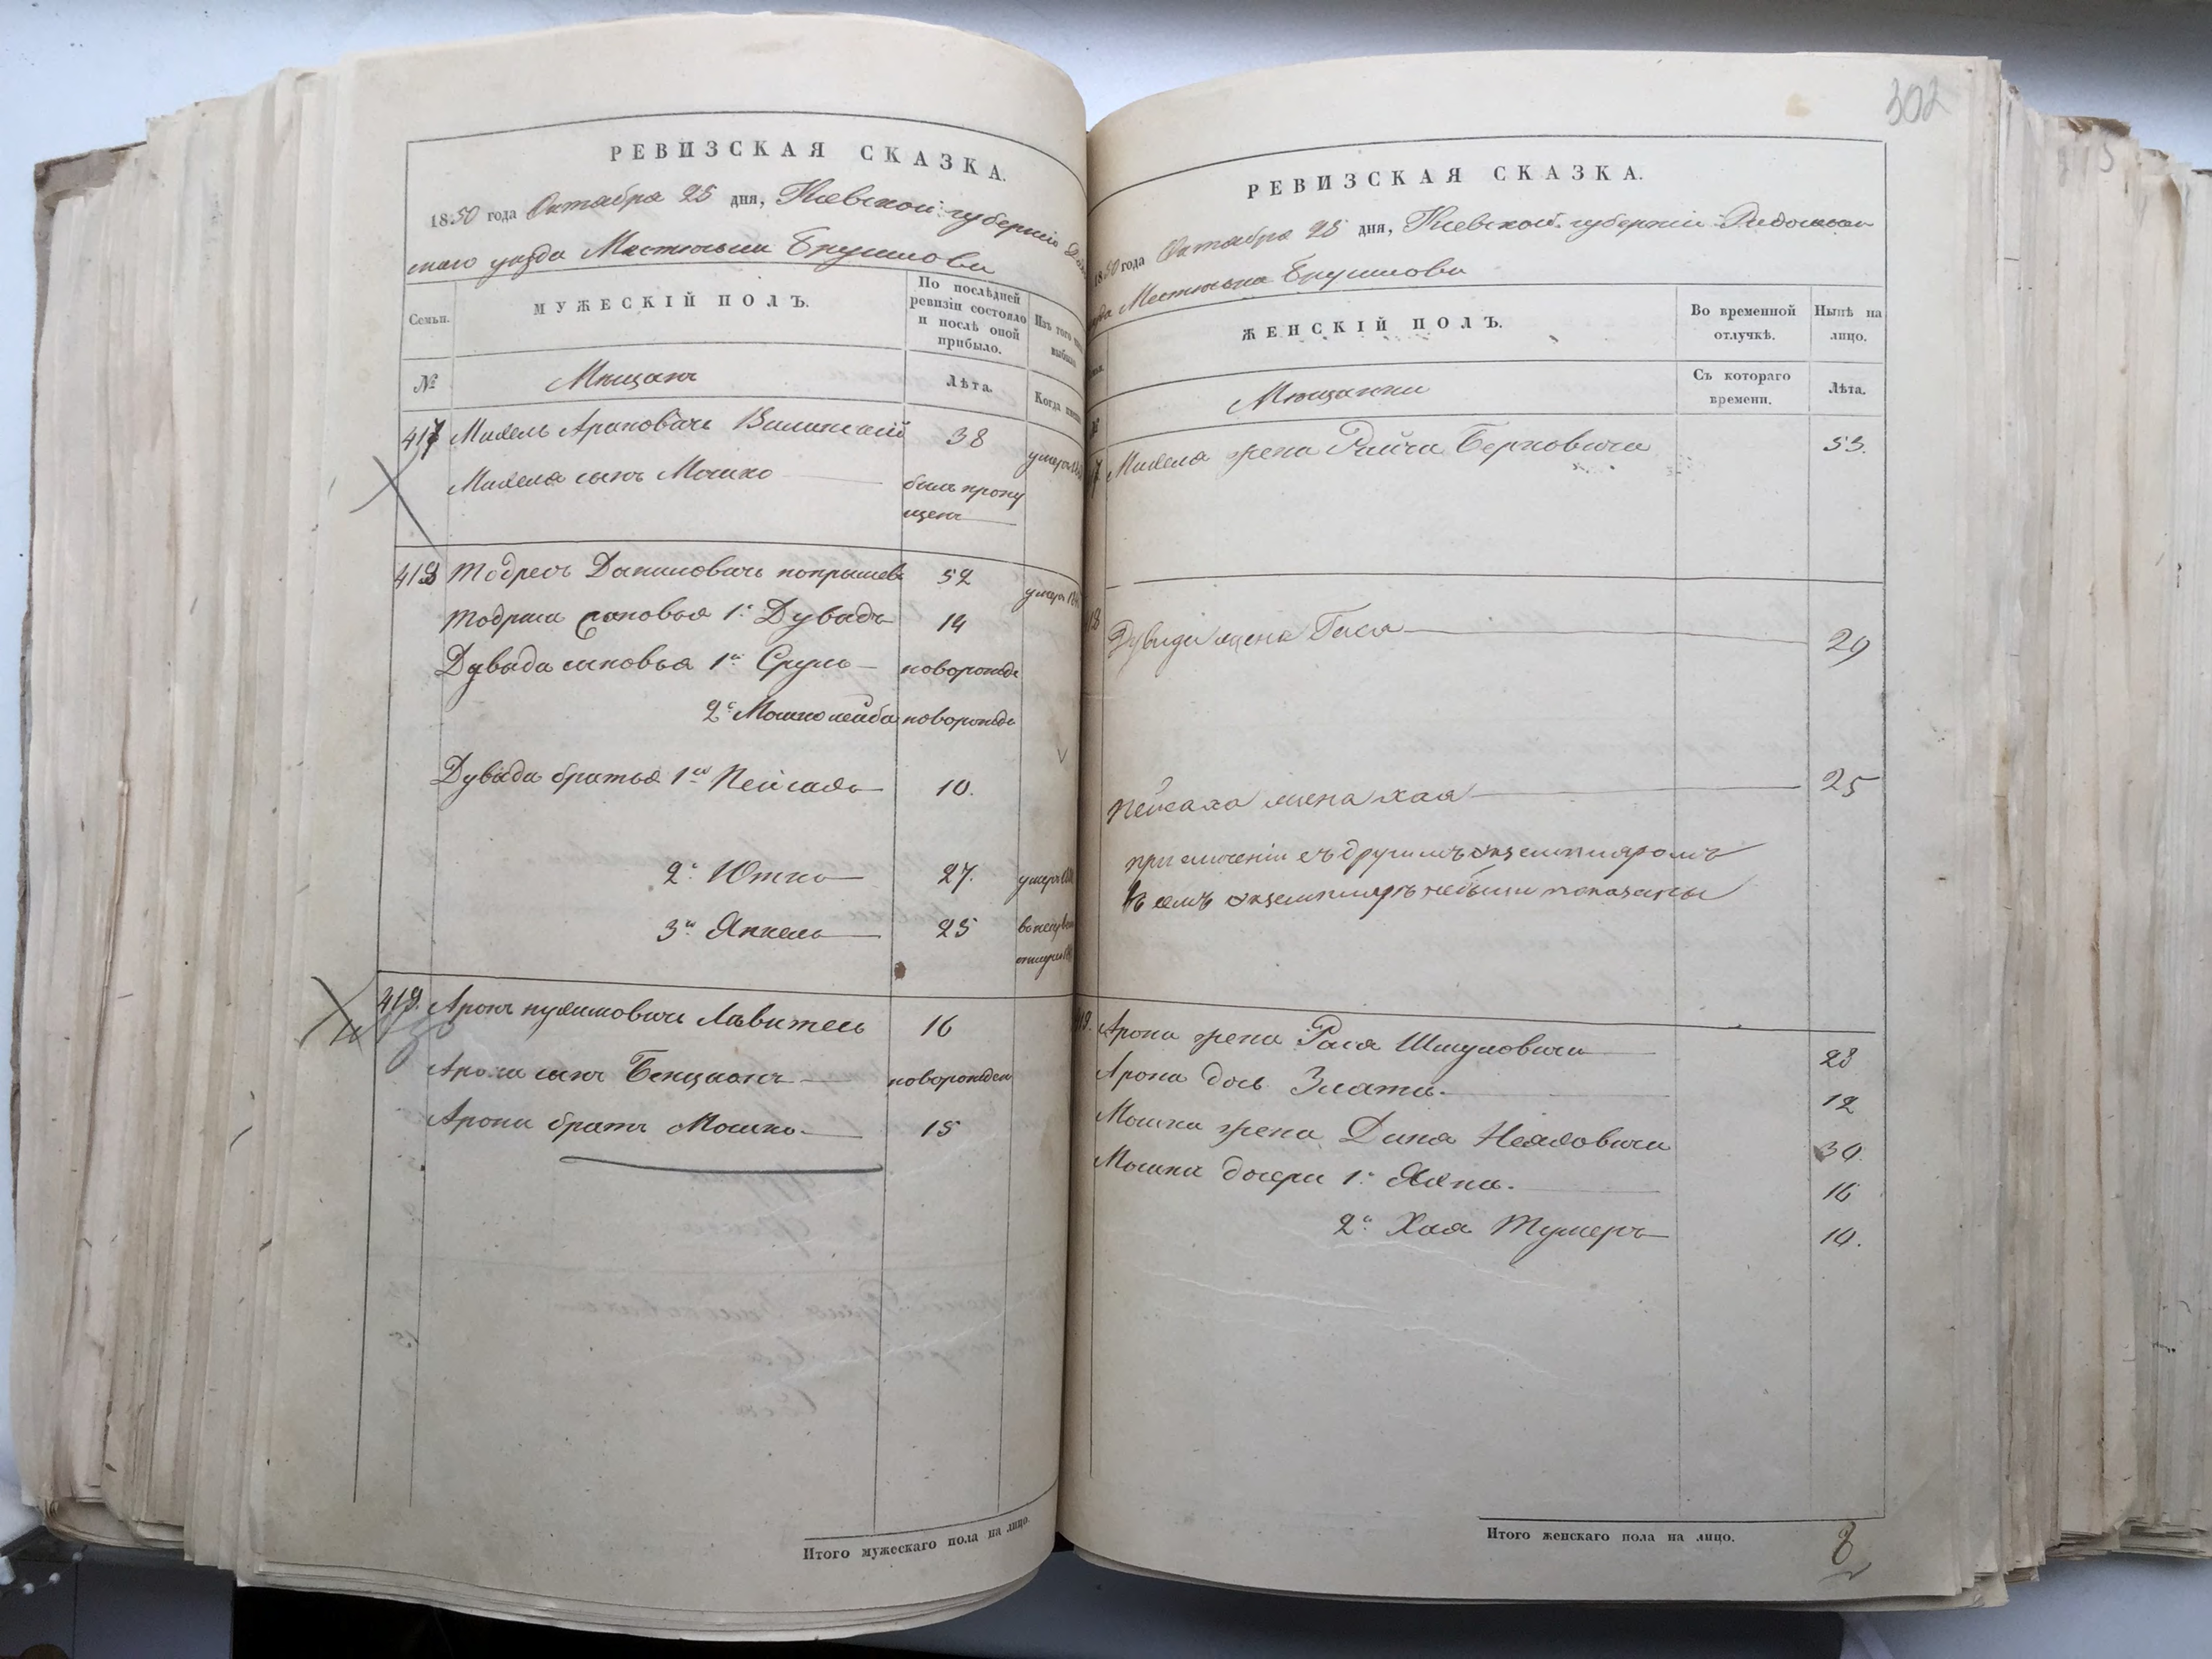 РЕВИЗСКАЯ СКАЗКА.
1850 года Октября 25 дня, Киевской губерніи
скаго уезда Местечка Брусилова
Семьи.
МУЖЕСКІЙ ПОЛЪ.
По послѣдней ревизіи состояло и послѣ оной прибыло.
Изъ того
№
Мещане
Лѣта.
Когда
417 Михель Ароновичъ Вилинскій 38 умеръ
Михеля сынъ Мошко былъ пропу
щенъ
418 Тодресъ Даниловичъ 52 умеръ
Тодриса сыновья 1й Дувидъ 14
Дувида сыновья 1й Сруль новорожде
2й Мошколейба новорожде
Дувида братья 1й Пейсахъ 10.
2й Ютко 27. умеръ
3й Янкель 25
419. Аронъ 16
Арона сынъ Бенционъ новорожден
Арона братъ Мошко 15
Итого мужескаго пола на лицо.
302
РЕВИЗСКАЯ СКАЗКА.
1850 года Октября 25 дня, Киевской губерніи
Местечка Брусилова
ЖЕНСКІЙ ПОЛЪ.
Во временной отлучкѣ.
Нынѣ на лицо.
Мещанки
Съ котораго времени.
Лѣта.
Михеля жена Райча Берковича 53.
Дувида жена Гися 29
Пейсаха жена хая 25
при сличеніи съ другимъ экземпляромъ
в семъ экземпляре небыли показаны
19. Арона жена Рася Шмуловича 28
Арона дочь Злата. 12
Мошка жена Дина 30.
Мошка дочери 1я 16
2я Хая 10.
Итого женскаго пола на лицо.
8